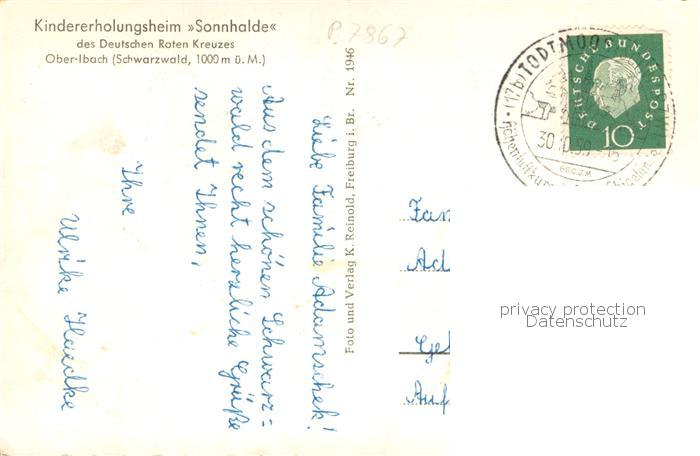 Kindererholungsheim »Sonnhalde«
des Deutschen Roten Kreuzes
Ober-Ibach (Schwarzwald, 1000 m ü. M.)
P.7867
Liebe Familie Adamschek!
Aus dem schönen Schwarz=
wald recht herzliche Grüße
sendet Ihnen,
Ihre
Ulrike Haedke
Foto und Verlag K. Reinold, Freiburg i. Br. Nr. 1946
(17b) TODTMOOS
30.10.59
DEUTSCHE BUNDESPOST
10
Fam
Ad
Gel
Auf
privacy protection
Datenschutz